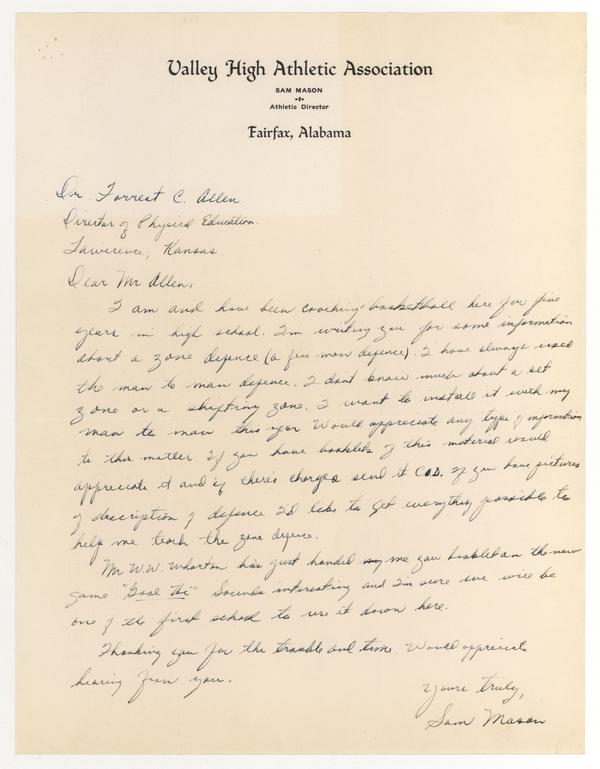 Valley High Athletic Association
SAM MASON
Athletic Director
Fairfax, Alabama
Dr. Forrest C. Allen.
Director of Physical Education.
Lawerence, Kansas.
Dear Mr Allen,
I am and have been coaching basketball here for five
years in high school. I'm writing you for some information
about a zone defence (a five man defence). I have always used
the man to man defence. I don't know much about a set
zone or a shifting zone. I want to install it with my
man to man this year Would appreciate any type of information
to this matter. If you have booklets of this material would
appreciate it and if there's charges send it C.O.D. If you have pictures
of description of defence I'd like to get everything possible to
help me teach the zone defence.
Mr W.W. Wharton has just handed me your booklet on the new
game "Goal Hi" Sounds interesting and I'm sure we will be
one of the first schools to use it down here.
Thanking you for the trouble and time. Would appreciate
hearing from you.
Yours truly,
Sam Mason